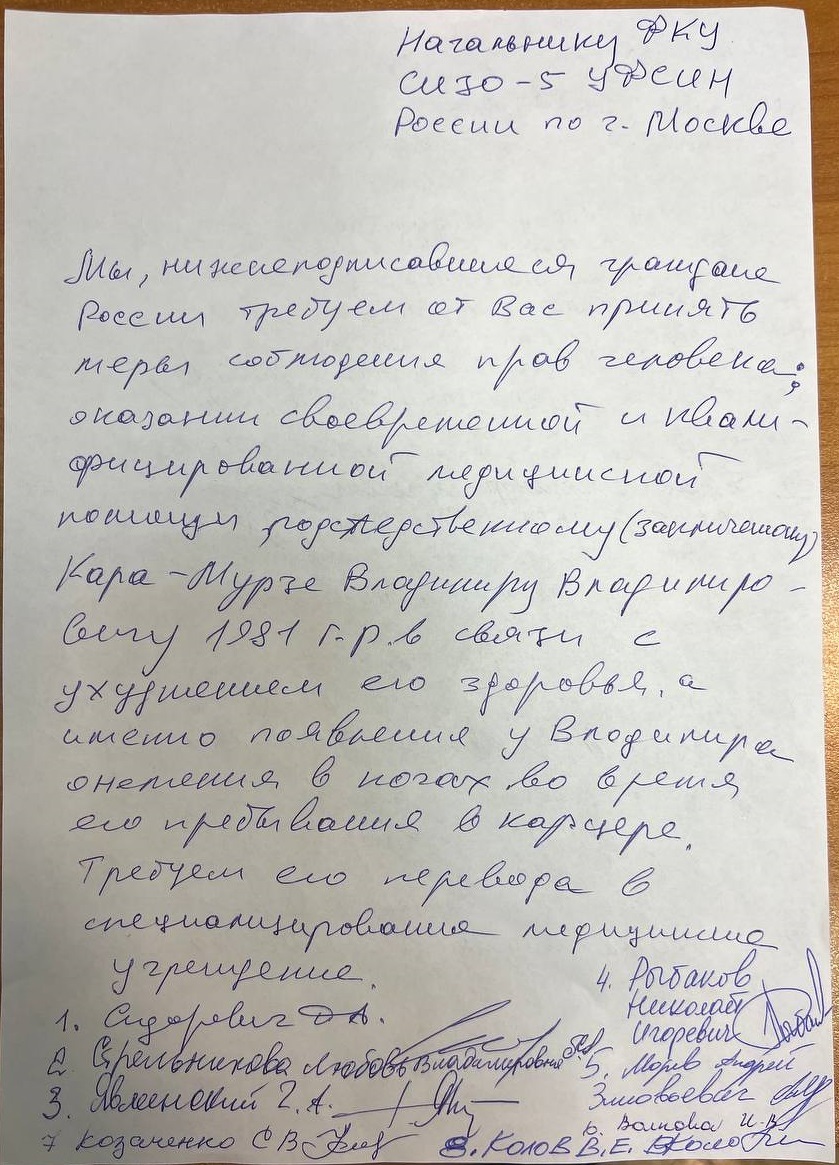 Начальнику ФКУ
СИЗО-5 УФСИН
России по г. Москве
Мы, нижеподписавшиеся граждане
России требуем от Вас принять
меры соблюдения прав человека;
оказании своевременной и квали-
фицированной медицинской
помощи подследственному (заключенному)
Кара-Мурзе Владимиру Владимиро-
вичу 1981 г.р. в связи с
ухудшением его здоровья, а
именно появления у Владимира
онемения в ногах во время
его пребывания в карцере.
Требуем его перевода в
специализирование медицинское
учреждение.
1. Сидорович Д.А.
2. Стрельникова Любовь Владимировна
3. Явлинский Г.А.
4. Рыбаков
Николай
Игоревич
5. Морев Андрей
Зиновьевич
6. Волкова И.В.
7 Козаченко С В
8. Колов В.Е.